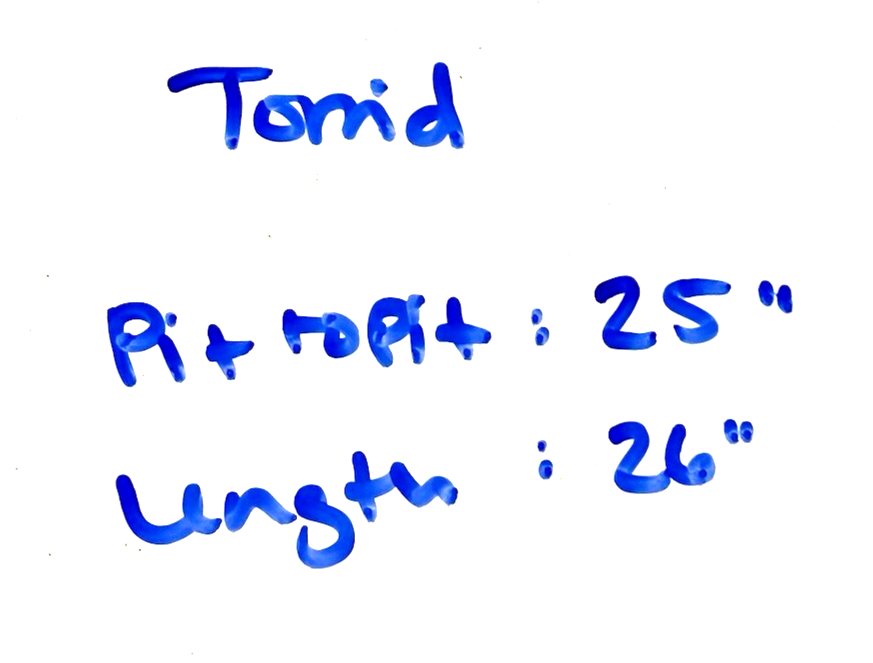 Torrid
Pit to Pit : 25"
Length : 26"